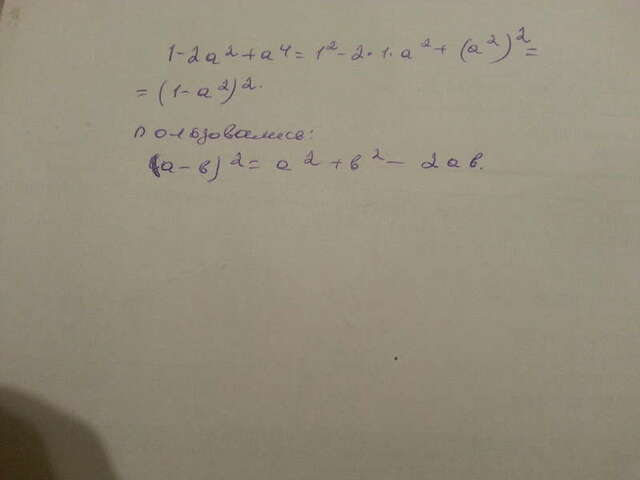 1-2a²+a⁴=1²-2·1·a²+(a²)²=
=(1-a²)².
пользовались:
(a-в)²=a²+в²-2aв.